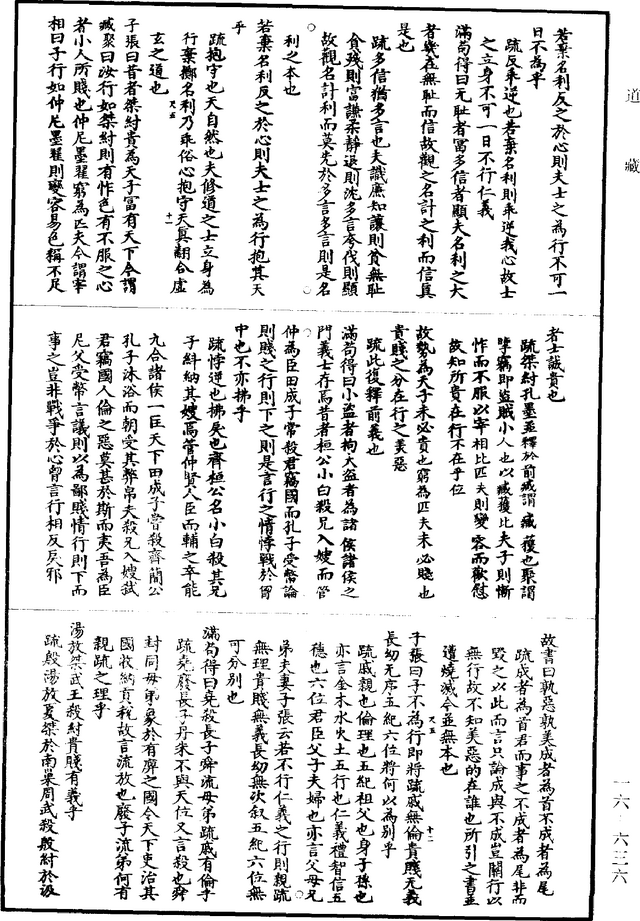 道藏
若棄名利反之於心則夫士之為行不可一
日不為乎
疏反乖逆也若棄名利則乖逆我心故士
之立身不可一日不行仁義
滿苟得曰无恥者富多信者顯夫名利之大
者幾在無恥而信故觀之名計之利而信真
是也
疏多信猶多言也夫識廉知讓則貧無恥
貪殘則富謙柔靜退則沈多言夸伐則顯
故觀名計利而莫先於多言多言則是名
利之本也
若棄名利反之於心則夫士之為行抱其天
乎
疏抱守也天自然也夫修道之士立身為
行棄擲名利乃乖俗心抱守天真翻合虛
玄之道也
子張曰昔者桀紂貴為天子富有天下今謂
臧聚曰汝行如桀紂則有怍色有不服之心
者小人所賤也仲尼墨翟窮為匹夫今謂宰
相曰子行如仲尼墨翟則變容易色稱不足
者士誠貴也
疏桀紂孔墨並釋於前臧謂臧獲也聚謂
孽竊即盜賊小人也以臧獲比夫子則慚
怍而不服以宰相比匹夫則變容而歡慰
故知所貴在行不在乎位
故勢為天子未必貴也窮為匹夫未必賤也
貴賤之分在行之美惡
疏此復釋前義也
滿苟得曰小盜者拘大盜者為諸侯諸侯之
門義士存焉昔者桓公小白殺兄入嫂而管
仲為臣田成子常殺君竊國而孔子受幣論
則賤之行則下之則是言行之情悖戰於胷
中也不亦拂乎
疏悖逆也拂戾也齊桓公名小白殺其兄
子糾納其嫂焉管仲賢人臣而輔之卒能
九合諸侯一匡天下田成子常殺齊簡公
孔子沐浴而朝受其弊帛夫殺兄入嫂弒
君竊國人倫之惡莫甚於斯而夷吾為臣
尼父受幣言議則以為鄙賤情行則下而
事之豈非戰爭於心胷言行相反戾邪
故書曰孰惡孰美成者為首不成者為尾
疏成者為首君而事之不成者為尾非而
毀之以此而言只論成與不成豈關行以
無行故不知美惡的在誰也所引之書並
遭燒滅今並無本也
子張曰子不為行即將疏戚無倫貴賤无義
長幼无序五紀六位將何以為別乎
疏戚親也倫理也五紀祖父也身子孫也
亦言金木水火土五行也仁義禮智信五
德也六位君臣父子夫婦也亦言父母兄
弟夫妻子張云若不行仁義之行則親疏
無理貴賤無義長幼無次叙五紀六位無
可分別也
滿苟得曰堯殺長子舜流母弟疏戚有倫乎
疏堯廢長子丹朱不與天位又言殺也舜
封同母弟象於有庳之國令天下吏治其
國收納貢稅故言流放也廢子流弟何有
親疏之理乎
湯放桀武王殺紂貴賤有義乎
疏殷湯放夏桀於南巢周武殺殷紂於汲
一六·六三六